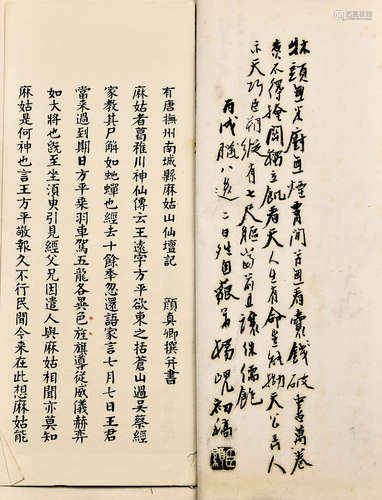 牀頭無米廚無煙無看囊錢破書萬卷
不得掩關獨立飢看天人生有命天公人
天巧臣朔縱有七尺軀讓侏儒飽
丙戌臘八二日初稿
有唐撫州南城縣麻姑山仙壇記 顏真卿撰并書
麻姑者葛稚川神仙傳云王遠字方平欲東之括倉山過吳蔡經
家教其尸解如虵蟬也經去十餘年忽還語家言七月七日王君
當來過到期日方平乘羽車駕五龍各異色旌旗導從威儀赫弈
如大將也旣至坐湏臾引見經父兄因遣人與麻姑相聞亦莫知
麻姑是何神也言王方平敬報久不行民間今來在此想麻姑能